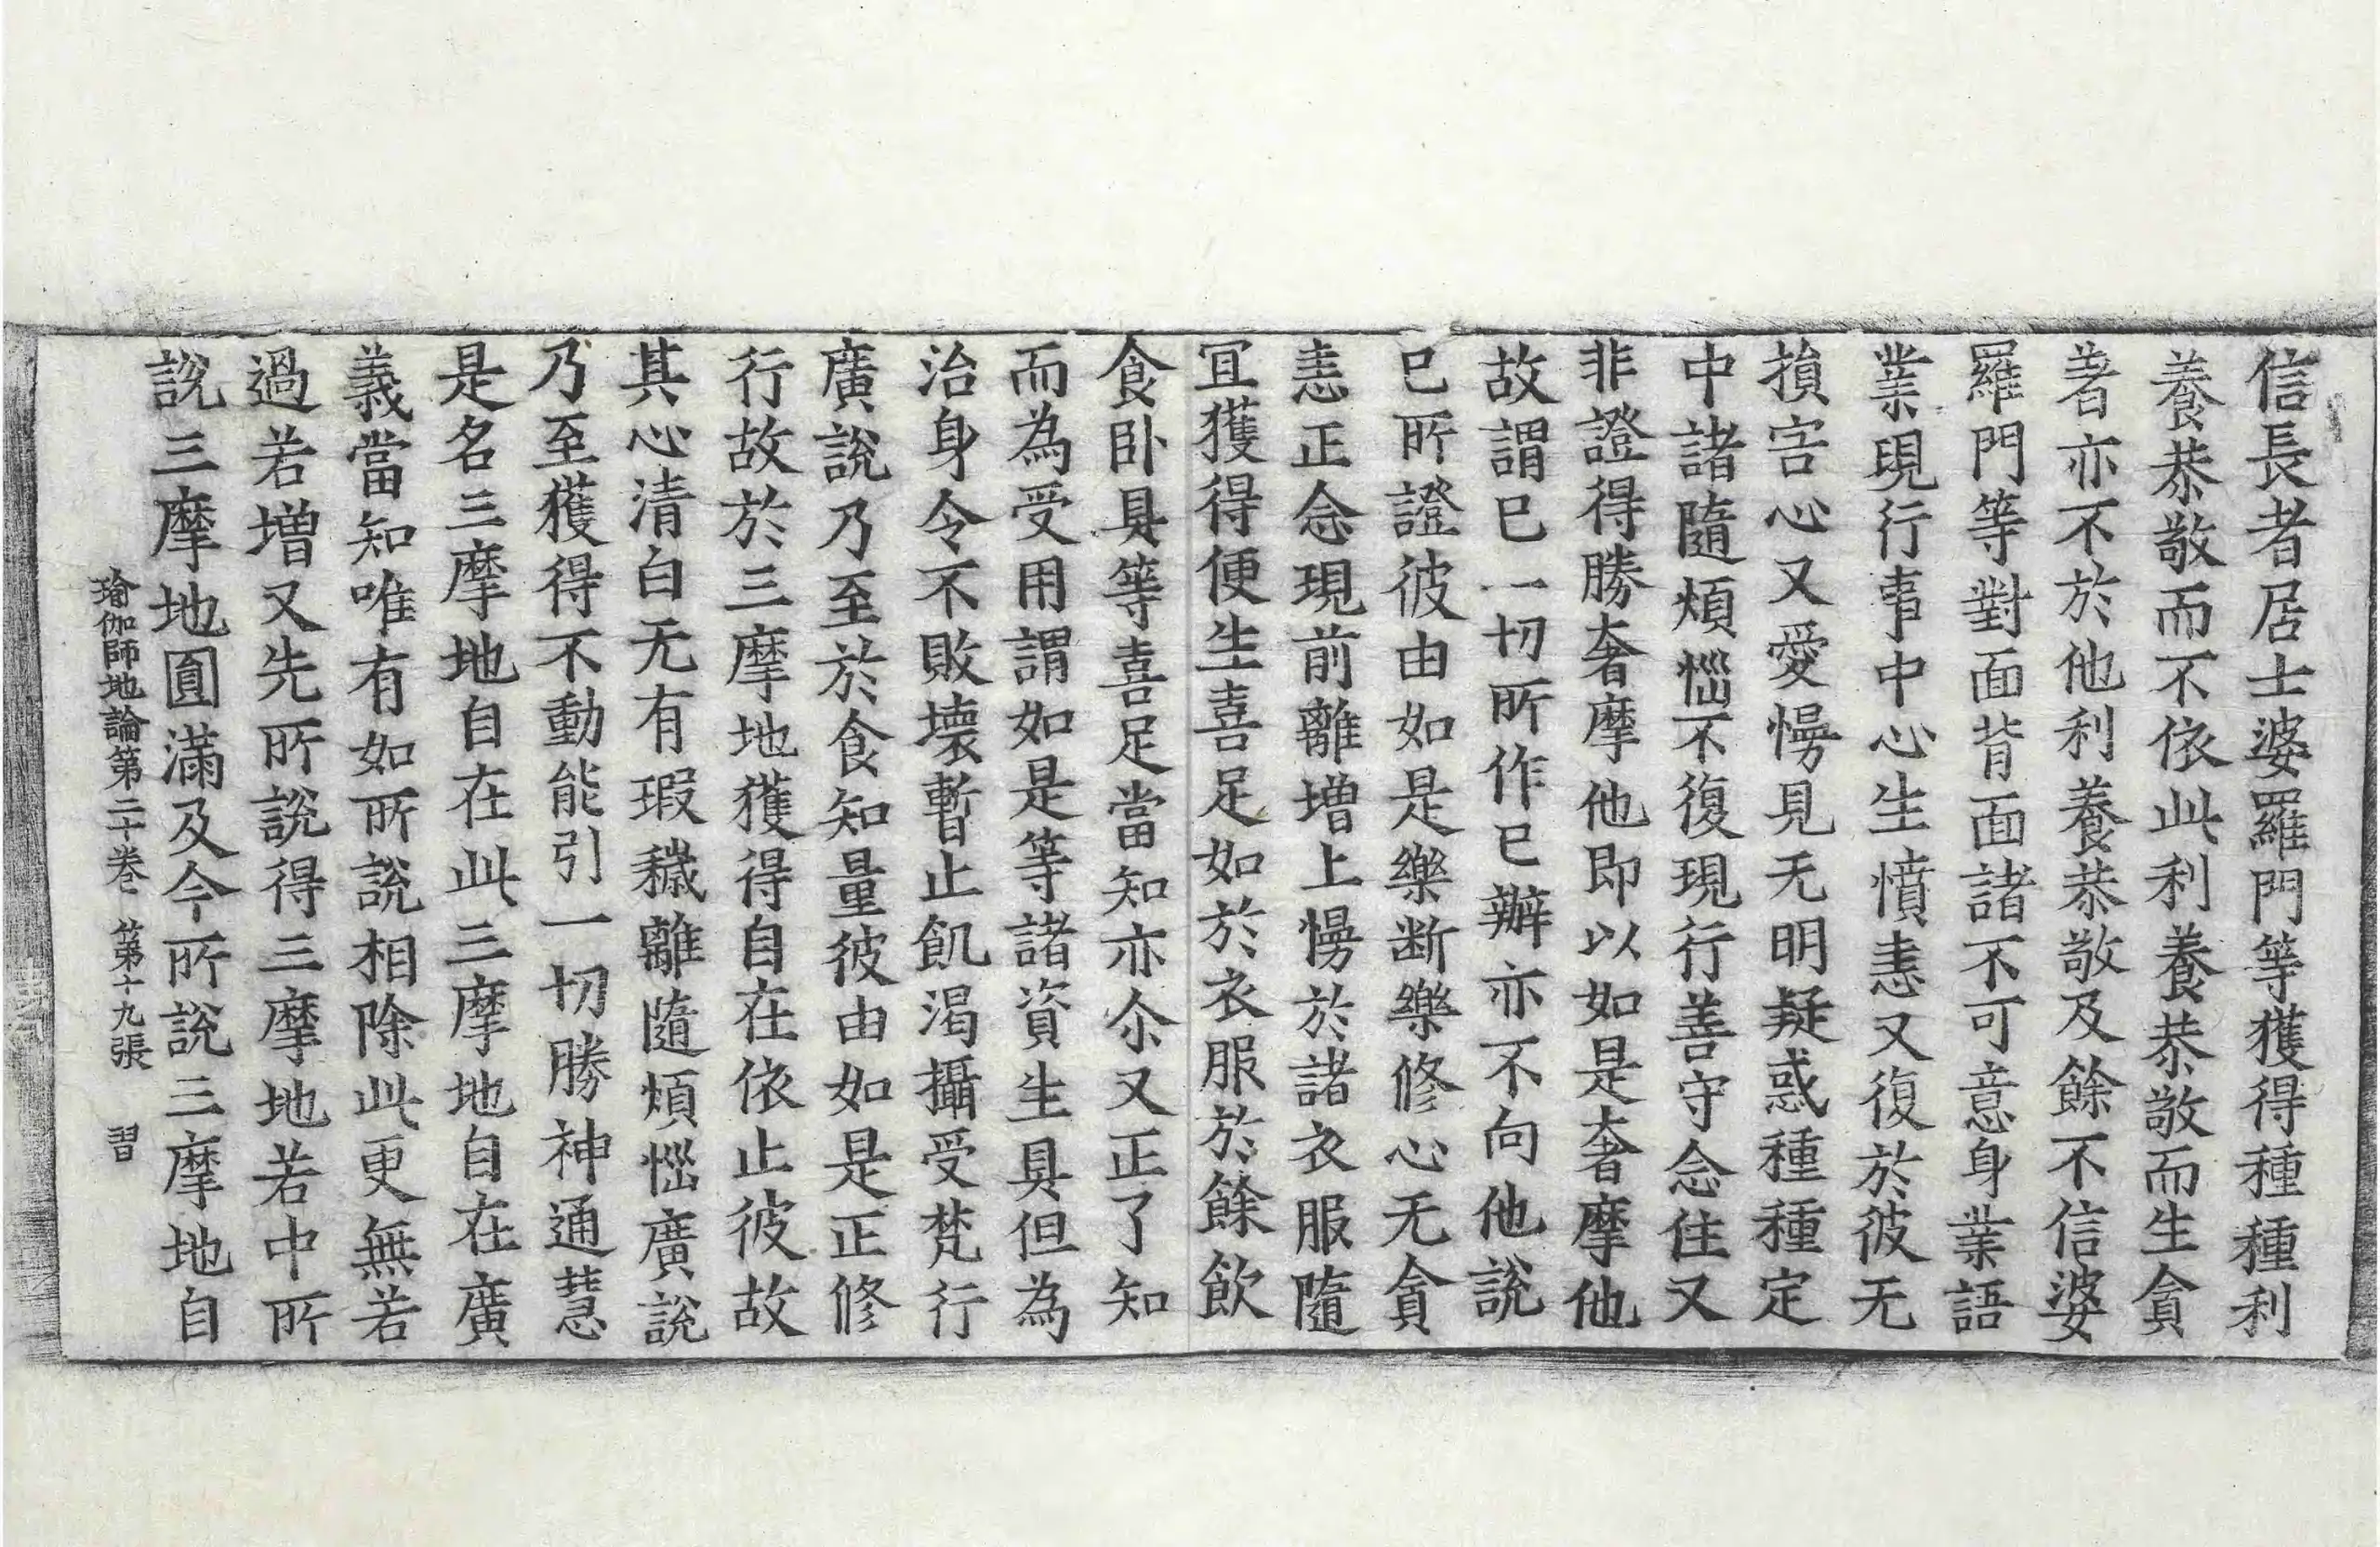 信長者居士婆羅門等獲得種種利
養恭敬而不依此利養恭敬而生貪
著亦不於他利養恭敬及餘不信婆
羅門等對面背面諸不可意身業語
業現行事中心生憤恚又復於彼无
損害心又愛慢見无明疑惑種種定
中諸隨煩惱不復現行善守念住又
非證得勝奢摩他即以如是奢摩他
故謂已一切所作已辦亦不向他說
已所證彼由如是樂断樂修心无貪
恚正念現前離增上慢於諸衣服隨
冝獲得便生喜足如於衣服於餘飲
食卧具等喜足當知亦尒又正了知
而為受用謂如是等諸資生具但為
治身令不敗壞暫止飢渴攝受梵行
廣說乃至於食知量彼由如是正修
行故於三摩地獲得自在依止彼故
其心清白无有瑕穢離隨煩惱廣說
乃至獲得不動能引一切勝神通慧
是名三摩地自在此三摩地自在廣
義當知唯有如所說相除此更無若
過若增又先所說得三摩地若中所
說三摩地圓滿及今所說三摩地自
瑜伽師地論第二十卷 第十九張 習